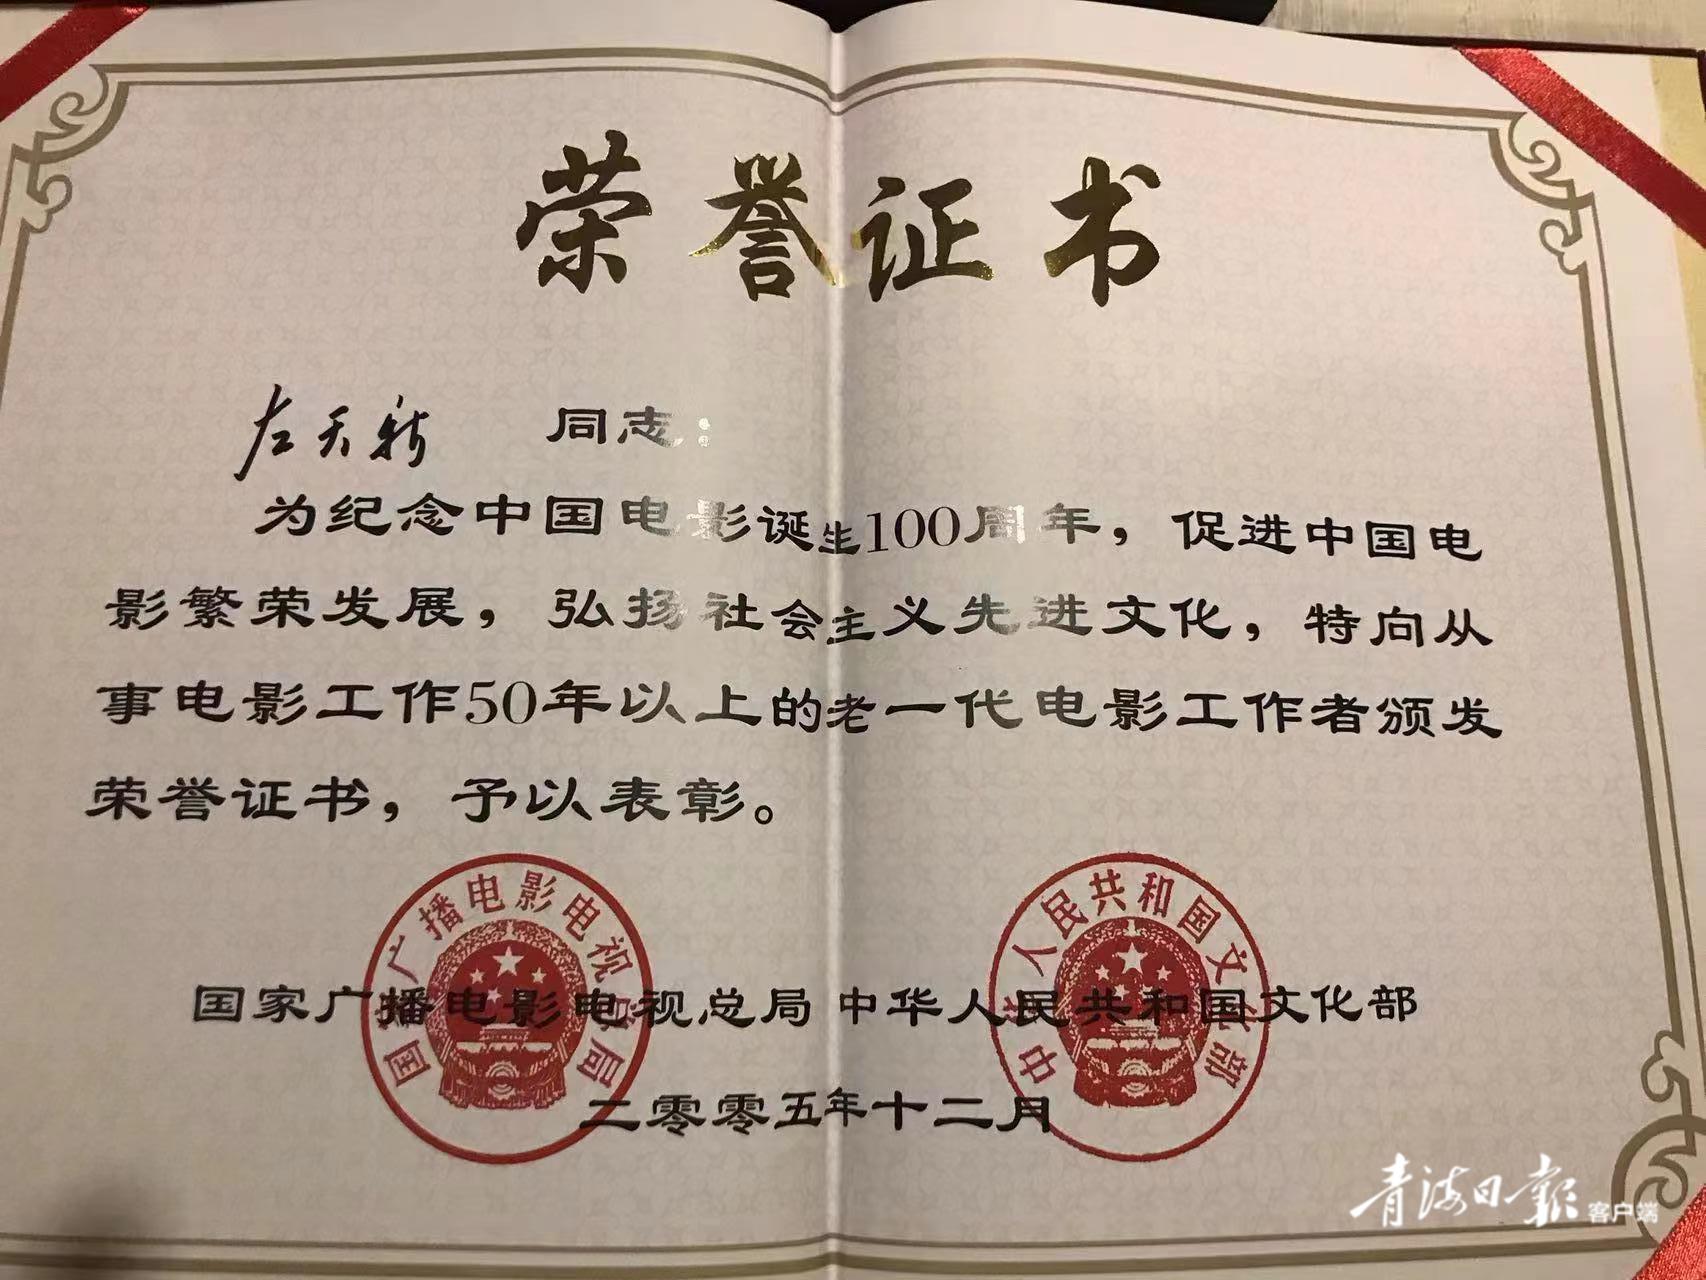 荣誉证书
左天新 同志：
为纪念中国电影诞生100周年，促进中国电
影繁荣发展，弘扬社会主义先进文化，特向从
事电影工作50年以上的老一代电影工作者颁发
荣誉证书，予以表彰。
国家广播电影电视总局 中华人民共和国文化部
国家广播电影电视总局
中华人民共和国文化部
二零零五年十二月
青海日报 客户端